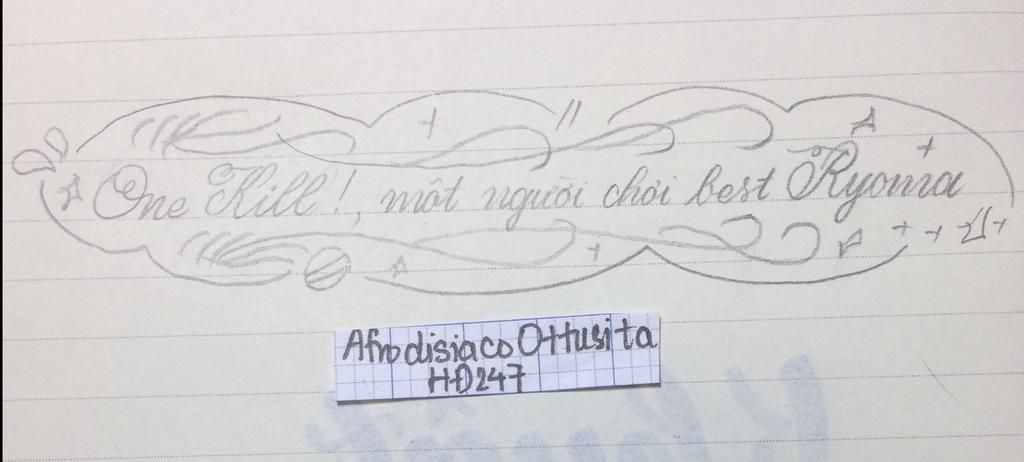 One Kill!, một người chơi best Ryoma
Afrodisiaco Ottusita
HĐ247